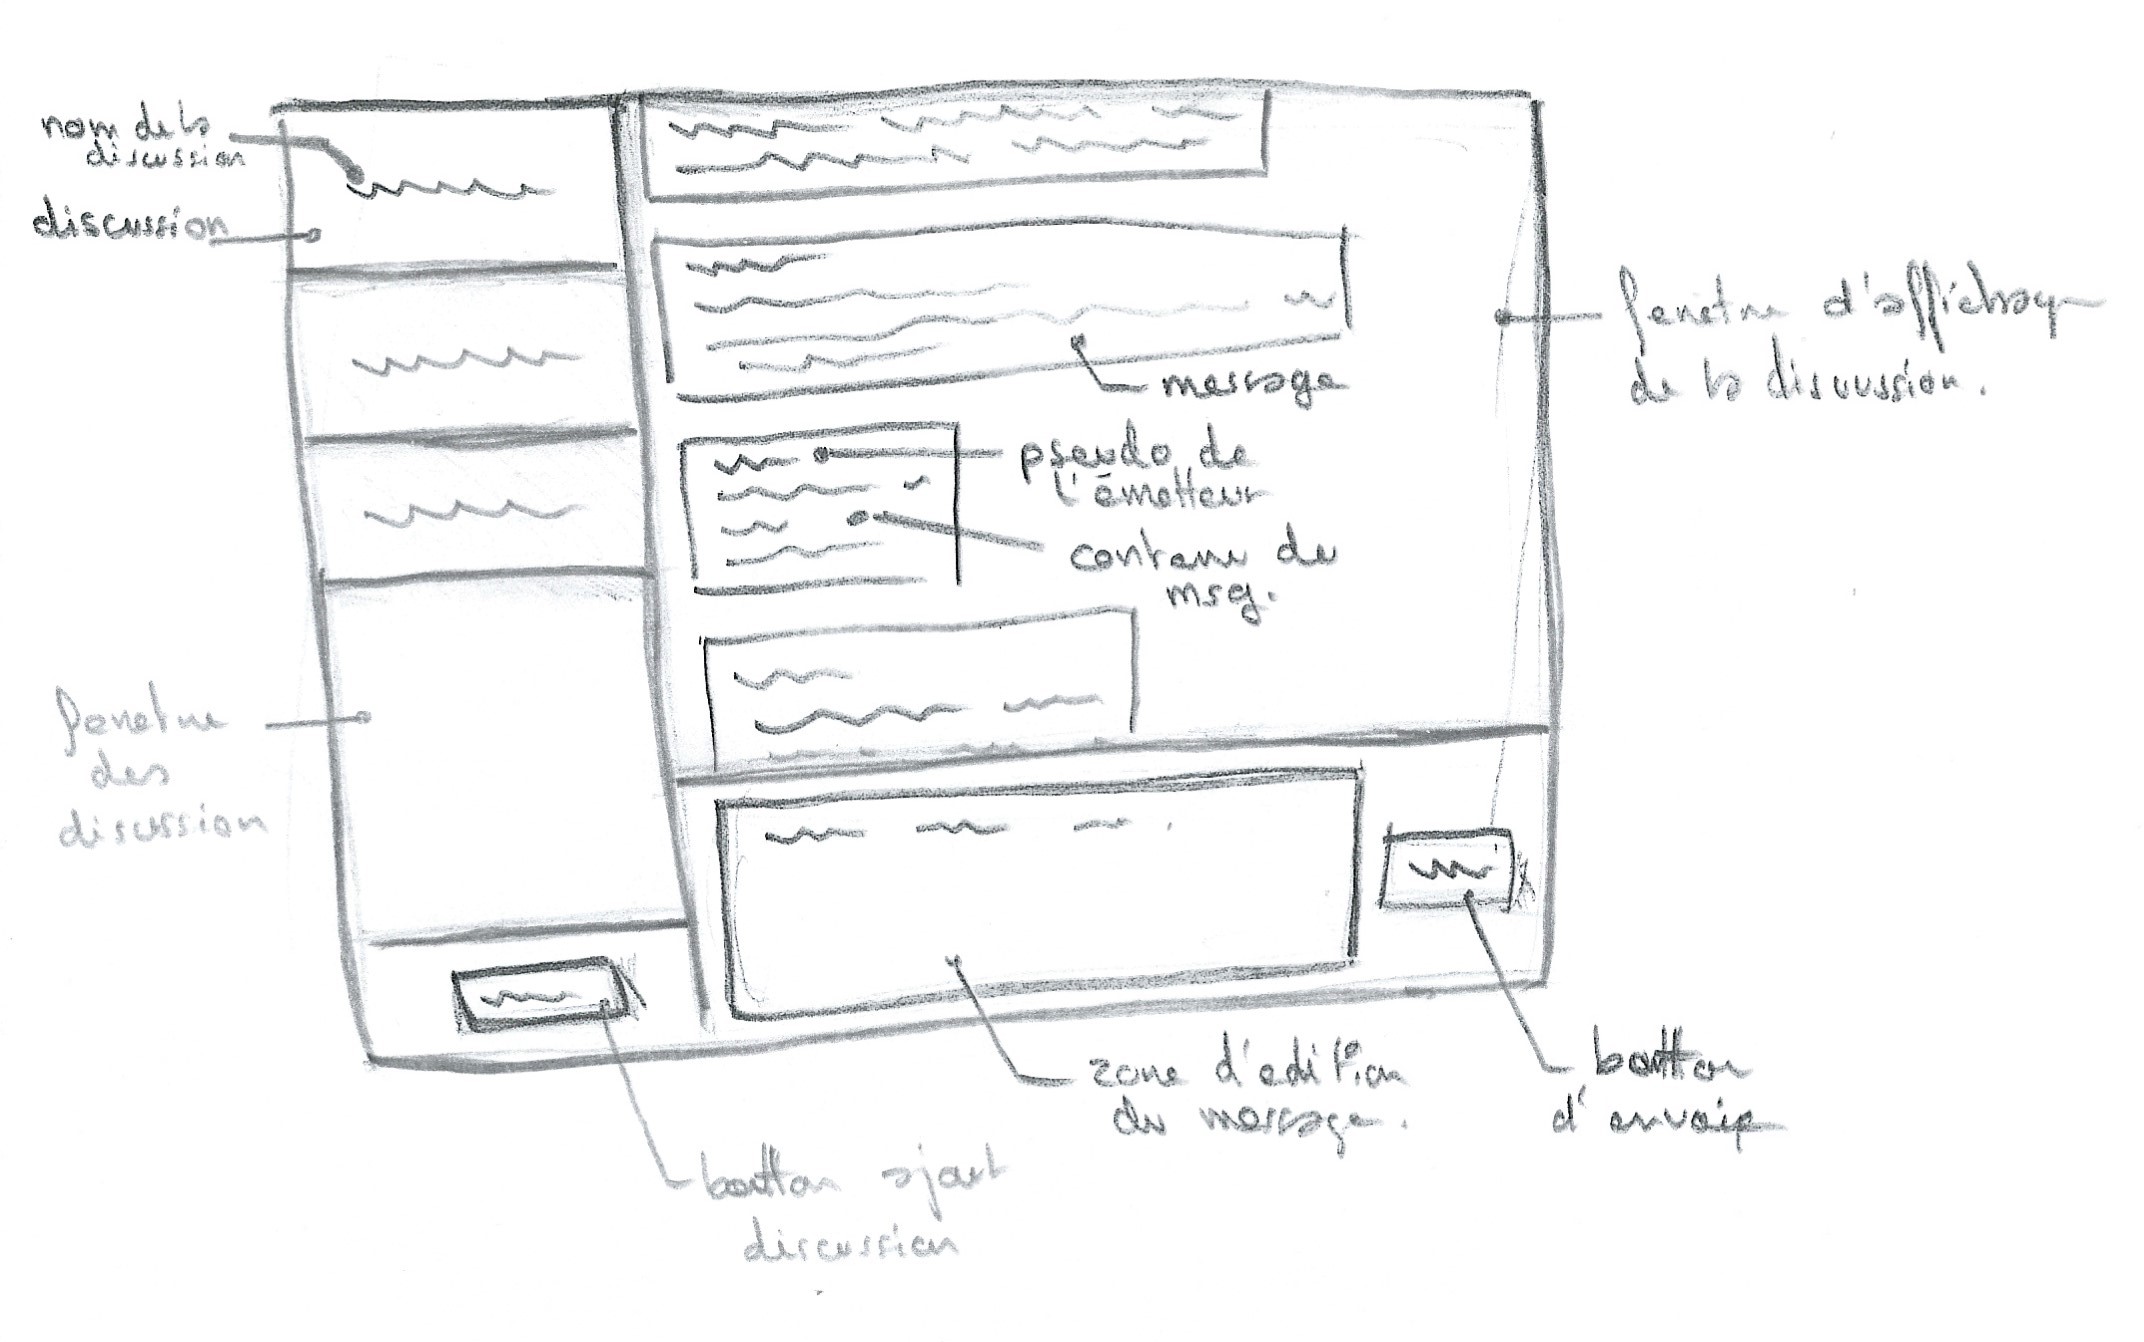 nom de la
discussion
discussion
fenetre d'affichage
de la discussion.
message
pseudo de
l'émetteur
contenu du
msg.
fenetre
des
discussion
zone d'edition
du message.
boutton
d'envoie
boutton ajout
discussion